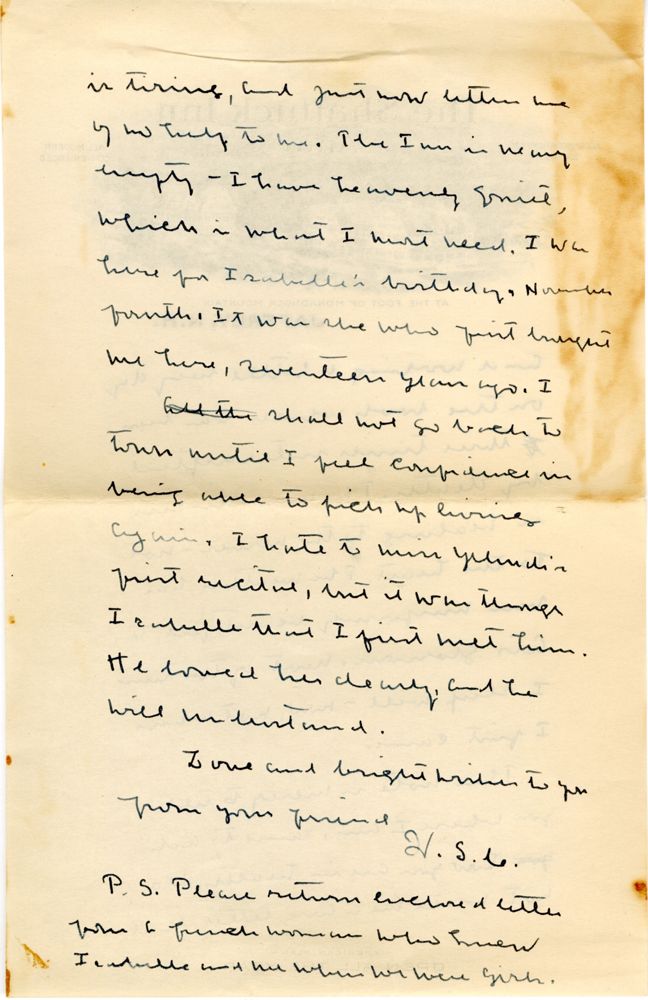 is tiring, and just now letters are
of no help to me. The Inn is nearly
empty – I have heavenly quiet,
which is what I most need. I was
here for Isabelle's birthday, November
fourth. It was she who first brought
me here, seventeen years ago. I
All the shall not go back to
town until I feel confidence in
being able to pick up living
again. I hate to miss Yehudi's
first recital, but it was through
Isabelle that I first met him.
He loved her dearly, and he
will understand.
Love and bright wishes to you
from your friend
W. S. C.
P. S. Please return enclosed letter
from a french woman who knew
Isabelle and me when we were girls.